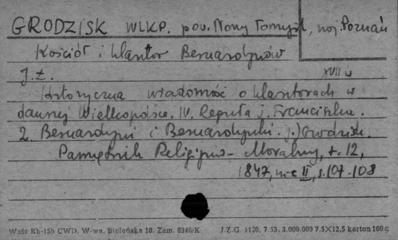 GRODZISK WLKP. pow. Nowy Tomyśl, woj. Poznań
Kościół i klasztor Bernardynów
XVII w
J.Ł.
Historyczna wiadomość o klasztorach w
dawnej Wielkopolsce. IV. Reguła j. Franciszka.
2. Bernardyni i Bernardynki. j. Grodzisk.
Pamiętnik Religijno-Moralny, t. 12,
1847, nr II, s. 107-108
Wzór Kb-15b CWD. W-wa. Bielańska 18. Zam. 0340/K J.Z.G. 1120. 7.53. 3.000.000 7.5X12.5 karton 160 g